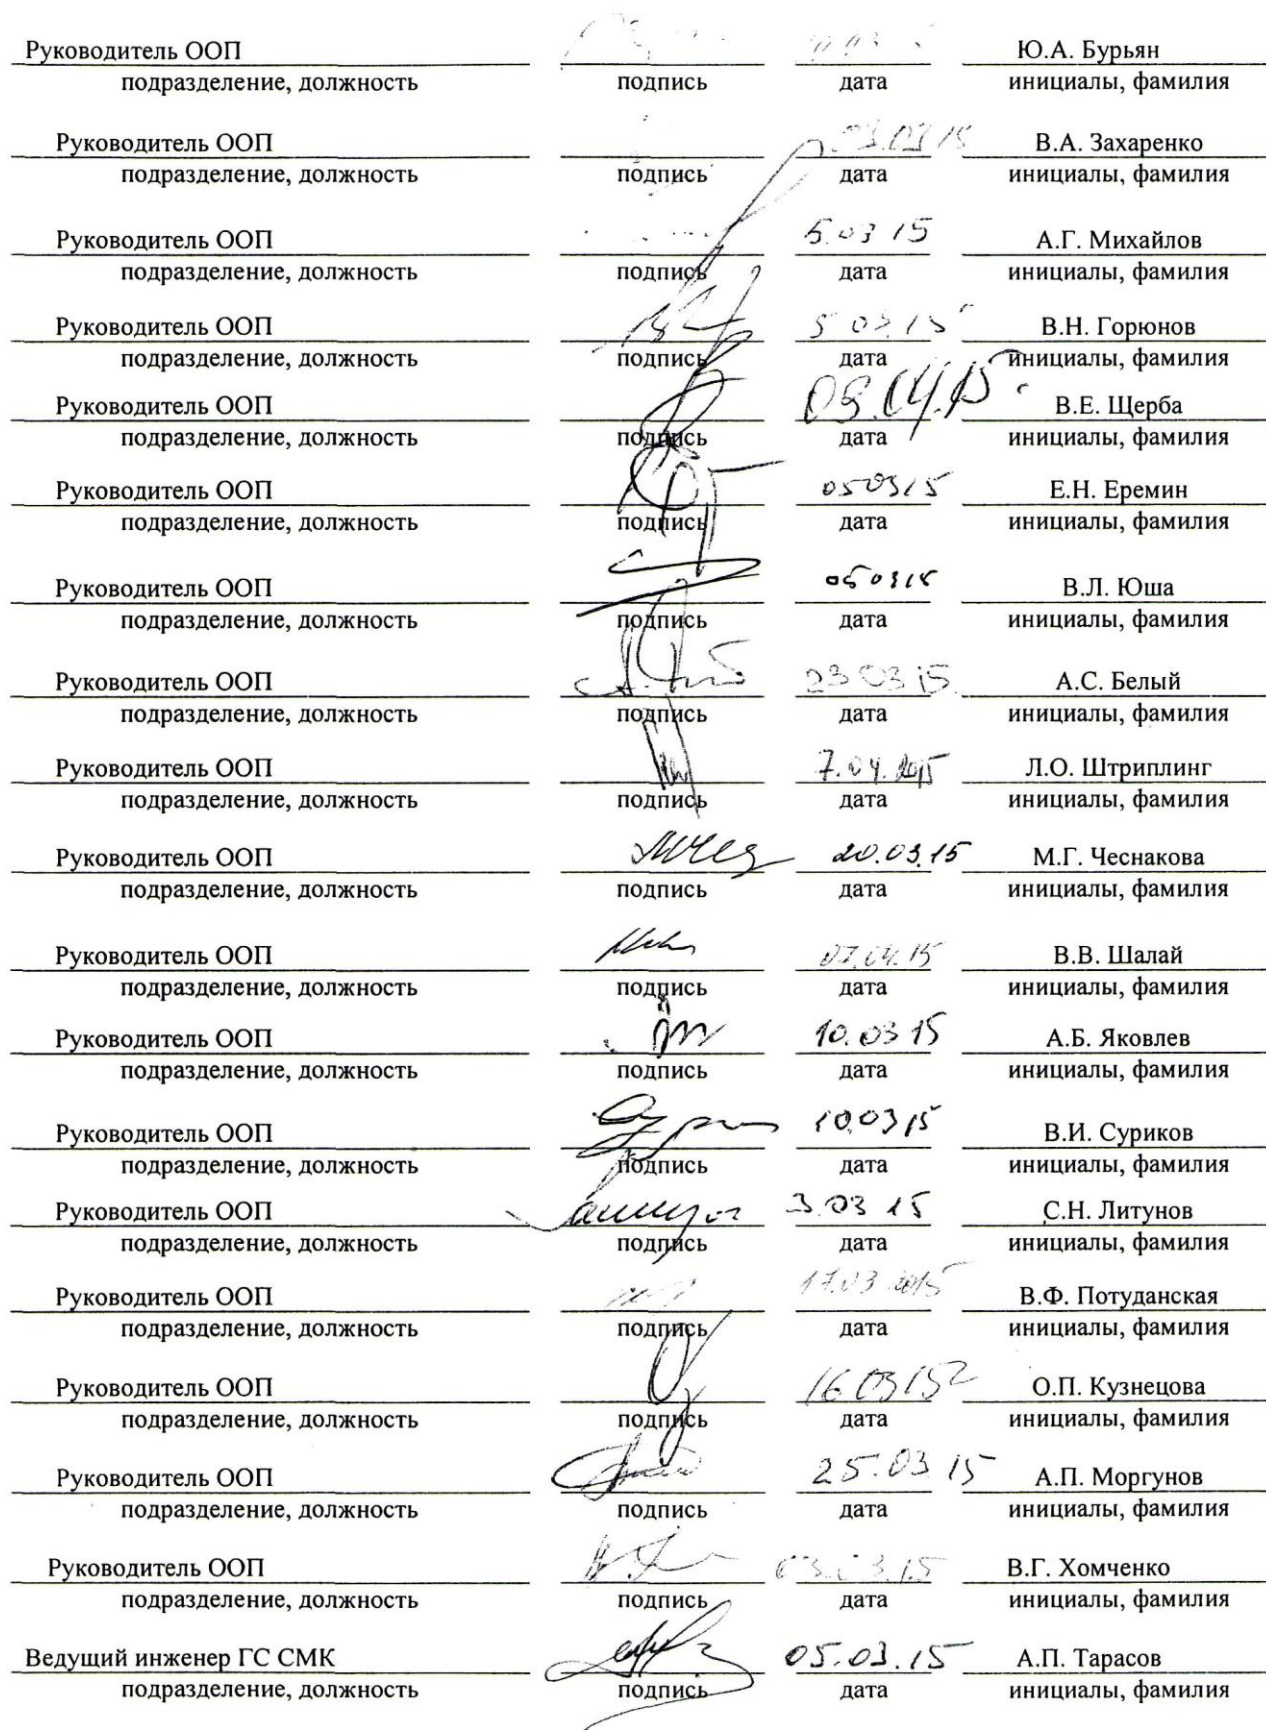 Руководитель ООП Ю.А. Бурьян
подразделение, должность подпись дата инициалы, фамилия
Руководитель ООП 03.03 15 В.А. Захаренко
подразделение, должность подпись дата инициалы, фамилия
Руководитель ООП 5.03 15 А.Г. Михайлов
подразделение, должность подпись дата инициалы, фамилия
Руководитель ООП 5 03.15 В.Н. Горюнов
подразделение, должность подпись дата инициалы, фамилия
Руководитель ООП В.Е. Щерба
подразделение, должность подпись дата инициалы, фамилия
Руководитель ООП 050315 Е.Н. Еремин
подразделение, должность подпись дата инициалы, фамилия
Руководитель ООП 050315 В.Л. Юша
подразделение, должность подпись дата инициалы, фамилия
Руководитель ООП 23 03 15 А.С. Белый
подразделение, должность подпись дата инициалы, фамилия
Руководитель ООП 7.04.2015 Л.О. Штриплинг
подразделение, должность подпись дата инициалы, фамилия
Руководитель ООП 20.03.15 М.Г. Чеснакова
подразделение, должность подпись дата инициалы, фамилия
Руководитель ООП 07.04.15 В.В. Шалай
подразделение, должность подпись дата инициалы, фамилия
Руководитель ООП 10.03 15 А.Б. Яковлев
подразделение, должность подпись дата инициалы, фамилия
Руководитель ООП 10.03 15 В.И. Суриков
подразделение, должность подпись дата инициалы, фамилия
Руководитель ООП 3.03 15 С.Н. Литунов
подразделение, должность подпись дата инициалы, фамилия
Руководитель ООП 17.03 2015 В.Ф. Потуданская
подразделение, должность подпись дата инициалы, фамилия
Руководитель ООП 16.03 15 О.П. Кузнецова
подразделение, должность подпись дата инициалы, фамилия
Руководитель ООП 25.03 15 А.П. Моргунов
подразделение, должность подпись дата инициалы, фамилия
Руководитель ООП 03.03.15 В.Г. Хомченко
подразделение, должность подпись дата инициалы, фамилия
Ведущий инженер ГС СМК 05.03.15 А.П. Тарасов
подразделение, должность подпись дата инициалы, фамилия